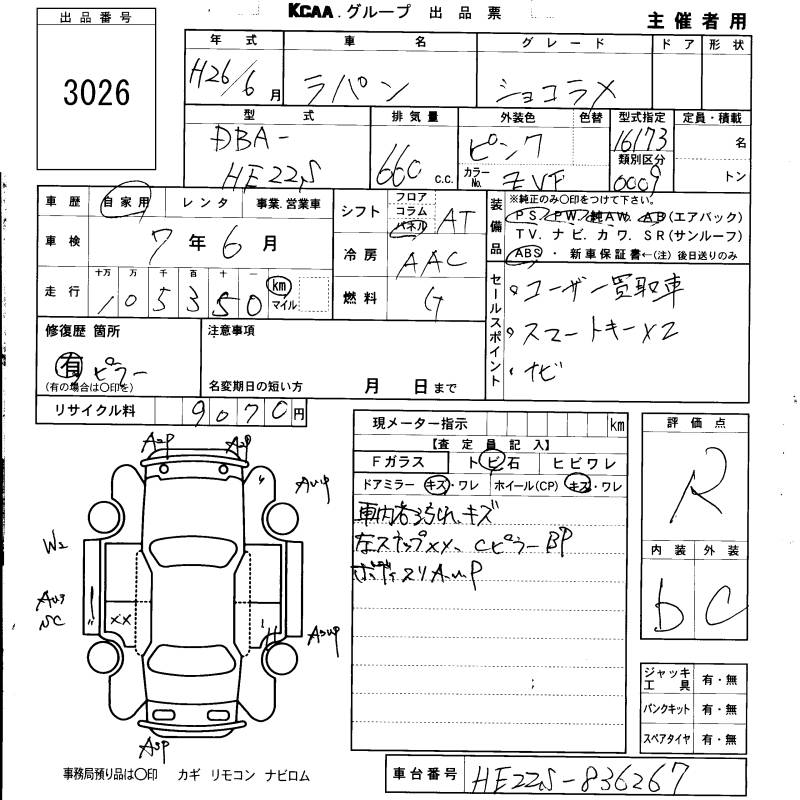 KCAA.グループ 出品票
主催者用
出品番号
3026
年式 車名 グレード ドア 形状
H26/6月 ラパン ショコラ X
型式 排気量 外装色 色替 型式指定 定員・積載
DBA- 660 c.c. ピンク 16173 名
HE22S カラーNo. ZVF 類別区分 0009 トン
車歴 自家用 レンタ 事業.営業車
シフト フロア コラム パネル AT
装備品 ※純正のみ〇印をつけて下さい。
PS.PW.純AW.AB(エアバック)
TV.ナビ.カワ.SR(サンルーフ)
ABS・新車保証書←(注)後日送りのみ
車検 7年6月
冷房 AAC
走行 十万 万 千 百 十 一
105350 km マイル
燃料 G
セールスポイント
・ユーザー買取車
・スマートキーX2
・ナビ
修復歴 箇所 注意事項
有 ピラー
(有の場合は〇印を) 名変期日の短い方 月 日まで
リサイクル料 9070円
現メーター指示 km
【査定員記入】
Fガラス トビ石 ヒビワレ
ドアミラー キズ・ワレ ホイール(CP) キズ・ワレ
車内ヨゴレ、キズ
左ステップXX、CピラーBP
評価点
R
内装 外装
b C
A2P A2P
AuP
W2
XX
A3P
ジャッキ工具 有・無
パンクキット 有・無
スペアタイヤ 有・無
事務局預り品は〇印 カギ リモコン ナビロム
車台番号 HE22S-836267